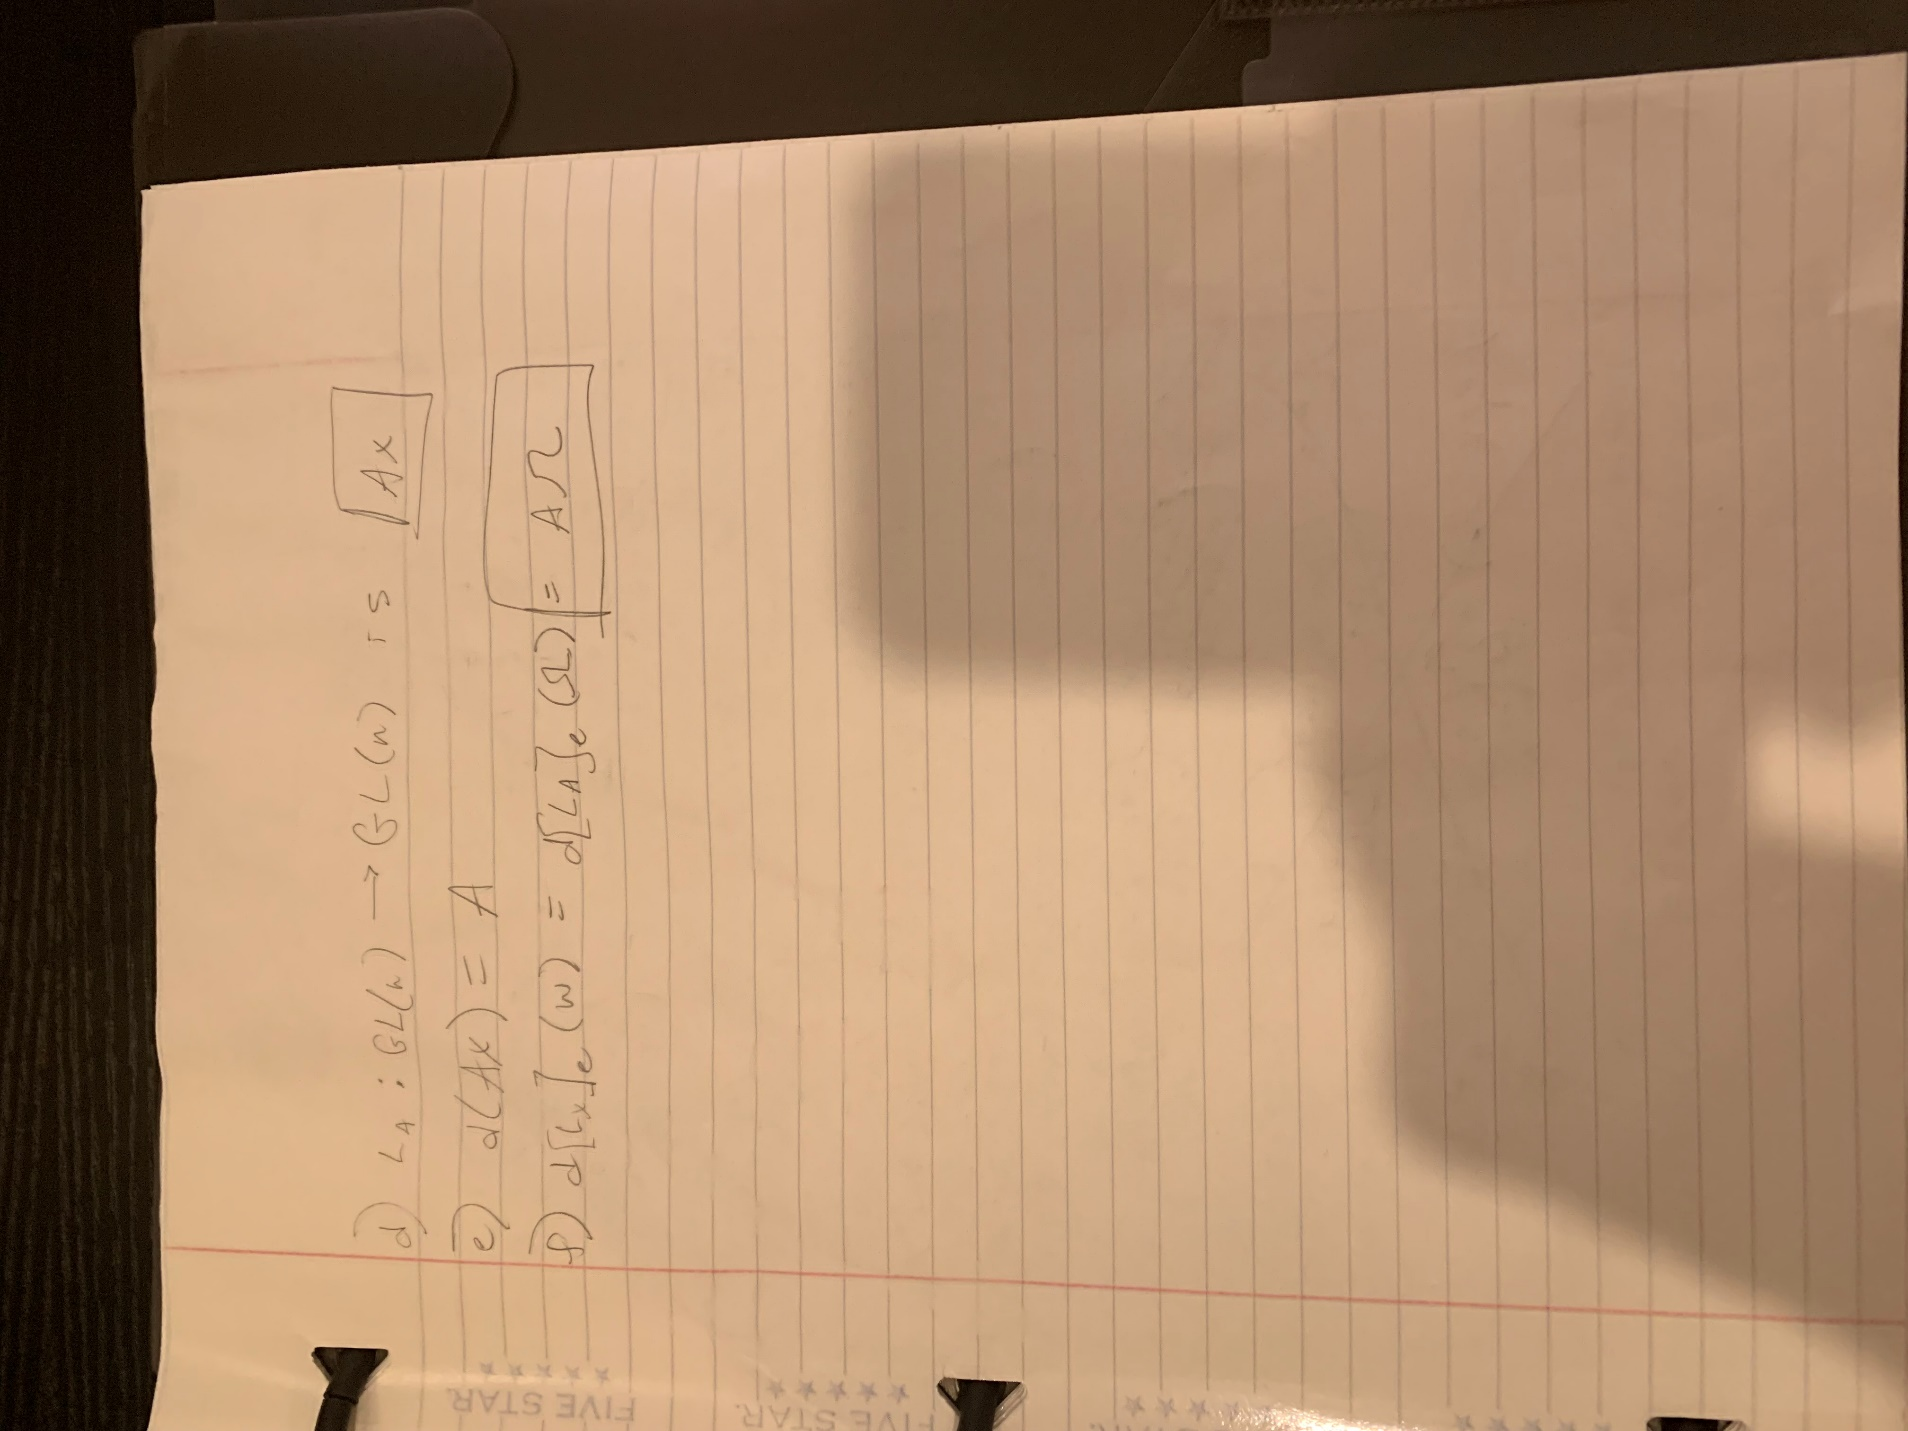 d) L_A : GL(n) → GL(n) is Ax
e) d(Ax) = A
f) d[L_x]_e (w) = d[L_A]_e (Ω) = AΩ
FIVE STAR
★★★★★
FIVE STAR
★★★★★